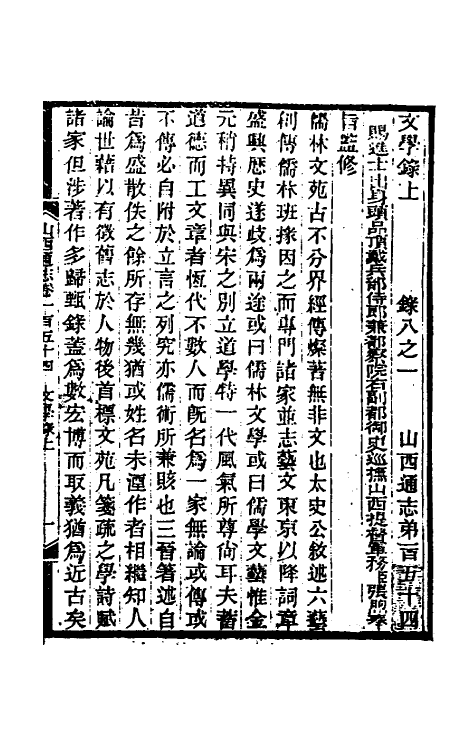 文學錄上　錄八之一　山西通志第一百五十四
賜進士出身頭品頂戴兵部侍郎兼都察院右副都御史巡撫山西提督軍務張煦奉
旨監修
儒林文苑古不分界經傳燦著無非文也太史公敘述六藝
創傳儒林班掾因之而專門諸家並志藝文東京以降詞章
盛興歷史遂歧爲兩途或曰儒林文學或曰儒學文藝惟金
元稍特異同與宋之別立道學特一代風氣所尊尙耳夫耆
道德而工文章者恆代不數人而旣名爲一家無論或傳或
不傳必自附於立言之列究亦儒術所兼賅也三晉著述自
昔爲盛散佚之餘所存無幾猶或姓名未湮作者相繼知人
論世藉以有徵舊志於人物後首標文苑凡箋疏之學詩賦
諸家但涉著作多歸甄錄蓋爲數宏博而取義猶爲近古矣
山西通志卷一百五十四　文學錄上　一